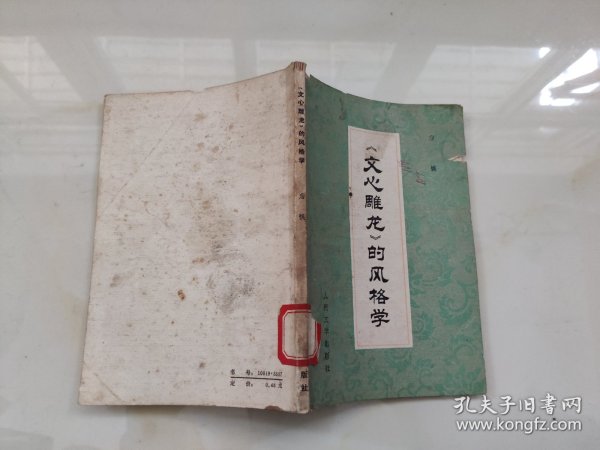 《文心雕龙》的风格学
人民文学出版社
《文心雕龙》的风格学
詹锳
版社
书号：10019·3357
定价：0.48元
孔夫子旧书网
www.kongfz.com